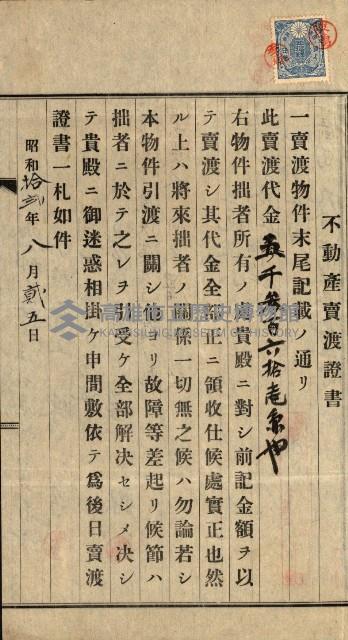 不動産賣渡證書
一賣渡物件末尾記載ノ通リ
此賣渡代金五千叁百六拾壱圓也
右物件拙者所有ノ處貴殿ニ對シ前記金額ヲ以
テ賣渡シ其代金全部正ニ領收仕候處實正也然
ル上ハ將來拙者ノ關係一切無之候ハ勿論若シ
本物件引渡ニ關シ他ヨリ故障等差起リ候節ハ
拙者ニ於テ之レヲ引受ケ全部解決セシメ決シ
テ貴殿ニ御迷惑相掛ケ申間敷依テ爲後日賣渡
證書一札如件
昭和拾貳年八月貳五日
高雄市立歷史博物館
KAOHSIUNG MUSEUM OF HISTORY